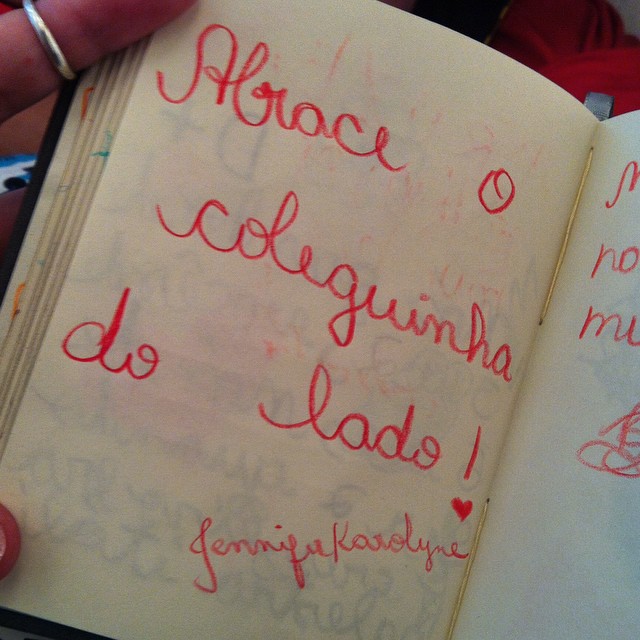 Abrace o
coleguinha
do lado!
Jennife Karolyne
no